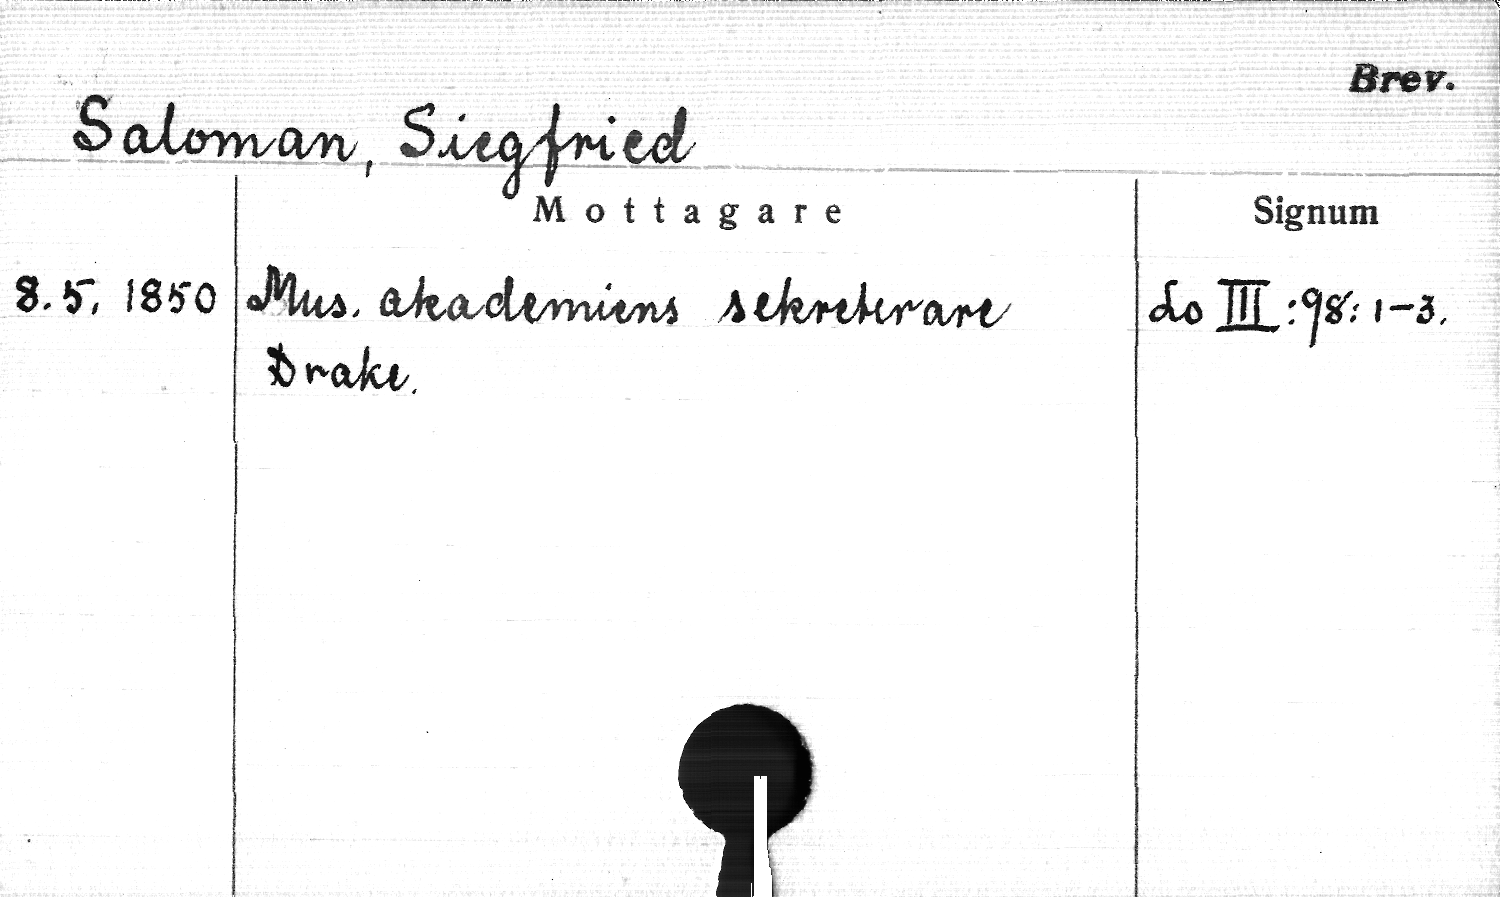 Brev.
Saloman, Siegfried
Mottagare
Signum
8.5. 1850 Mus. akademiens sekreterare Lo III:98:1-3.
Drake.